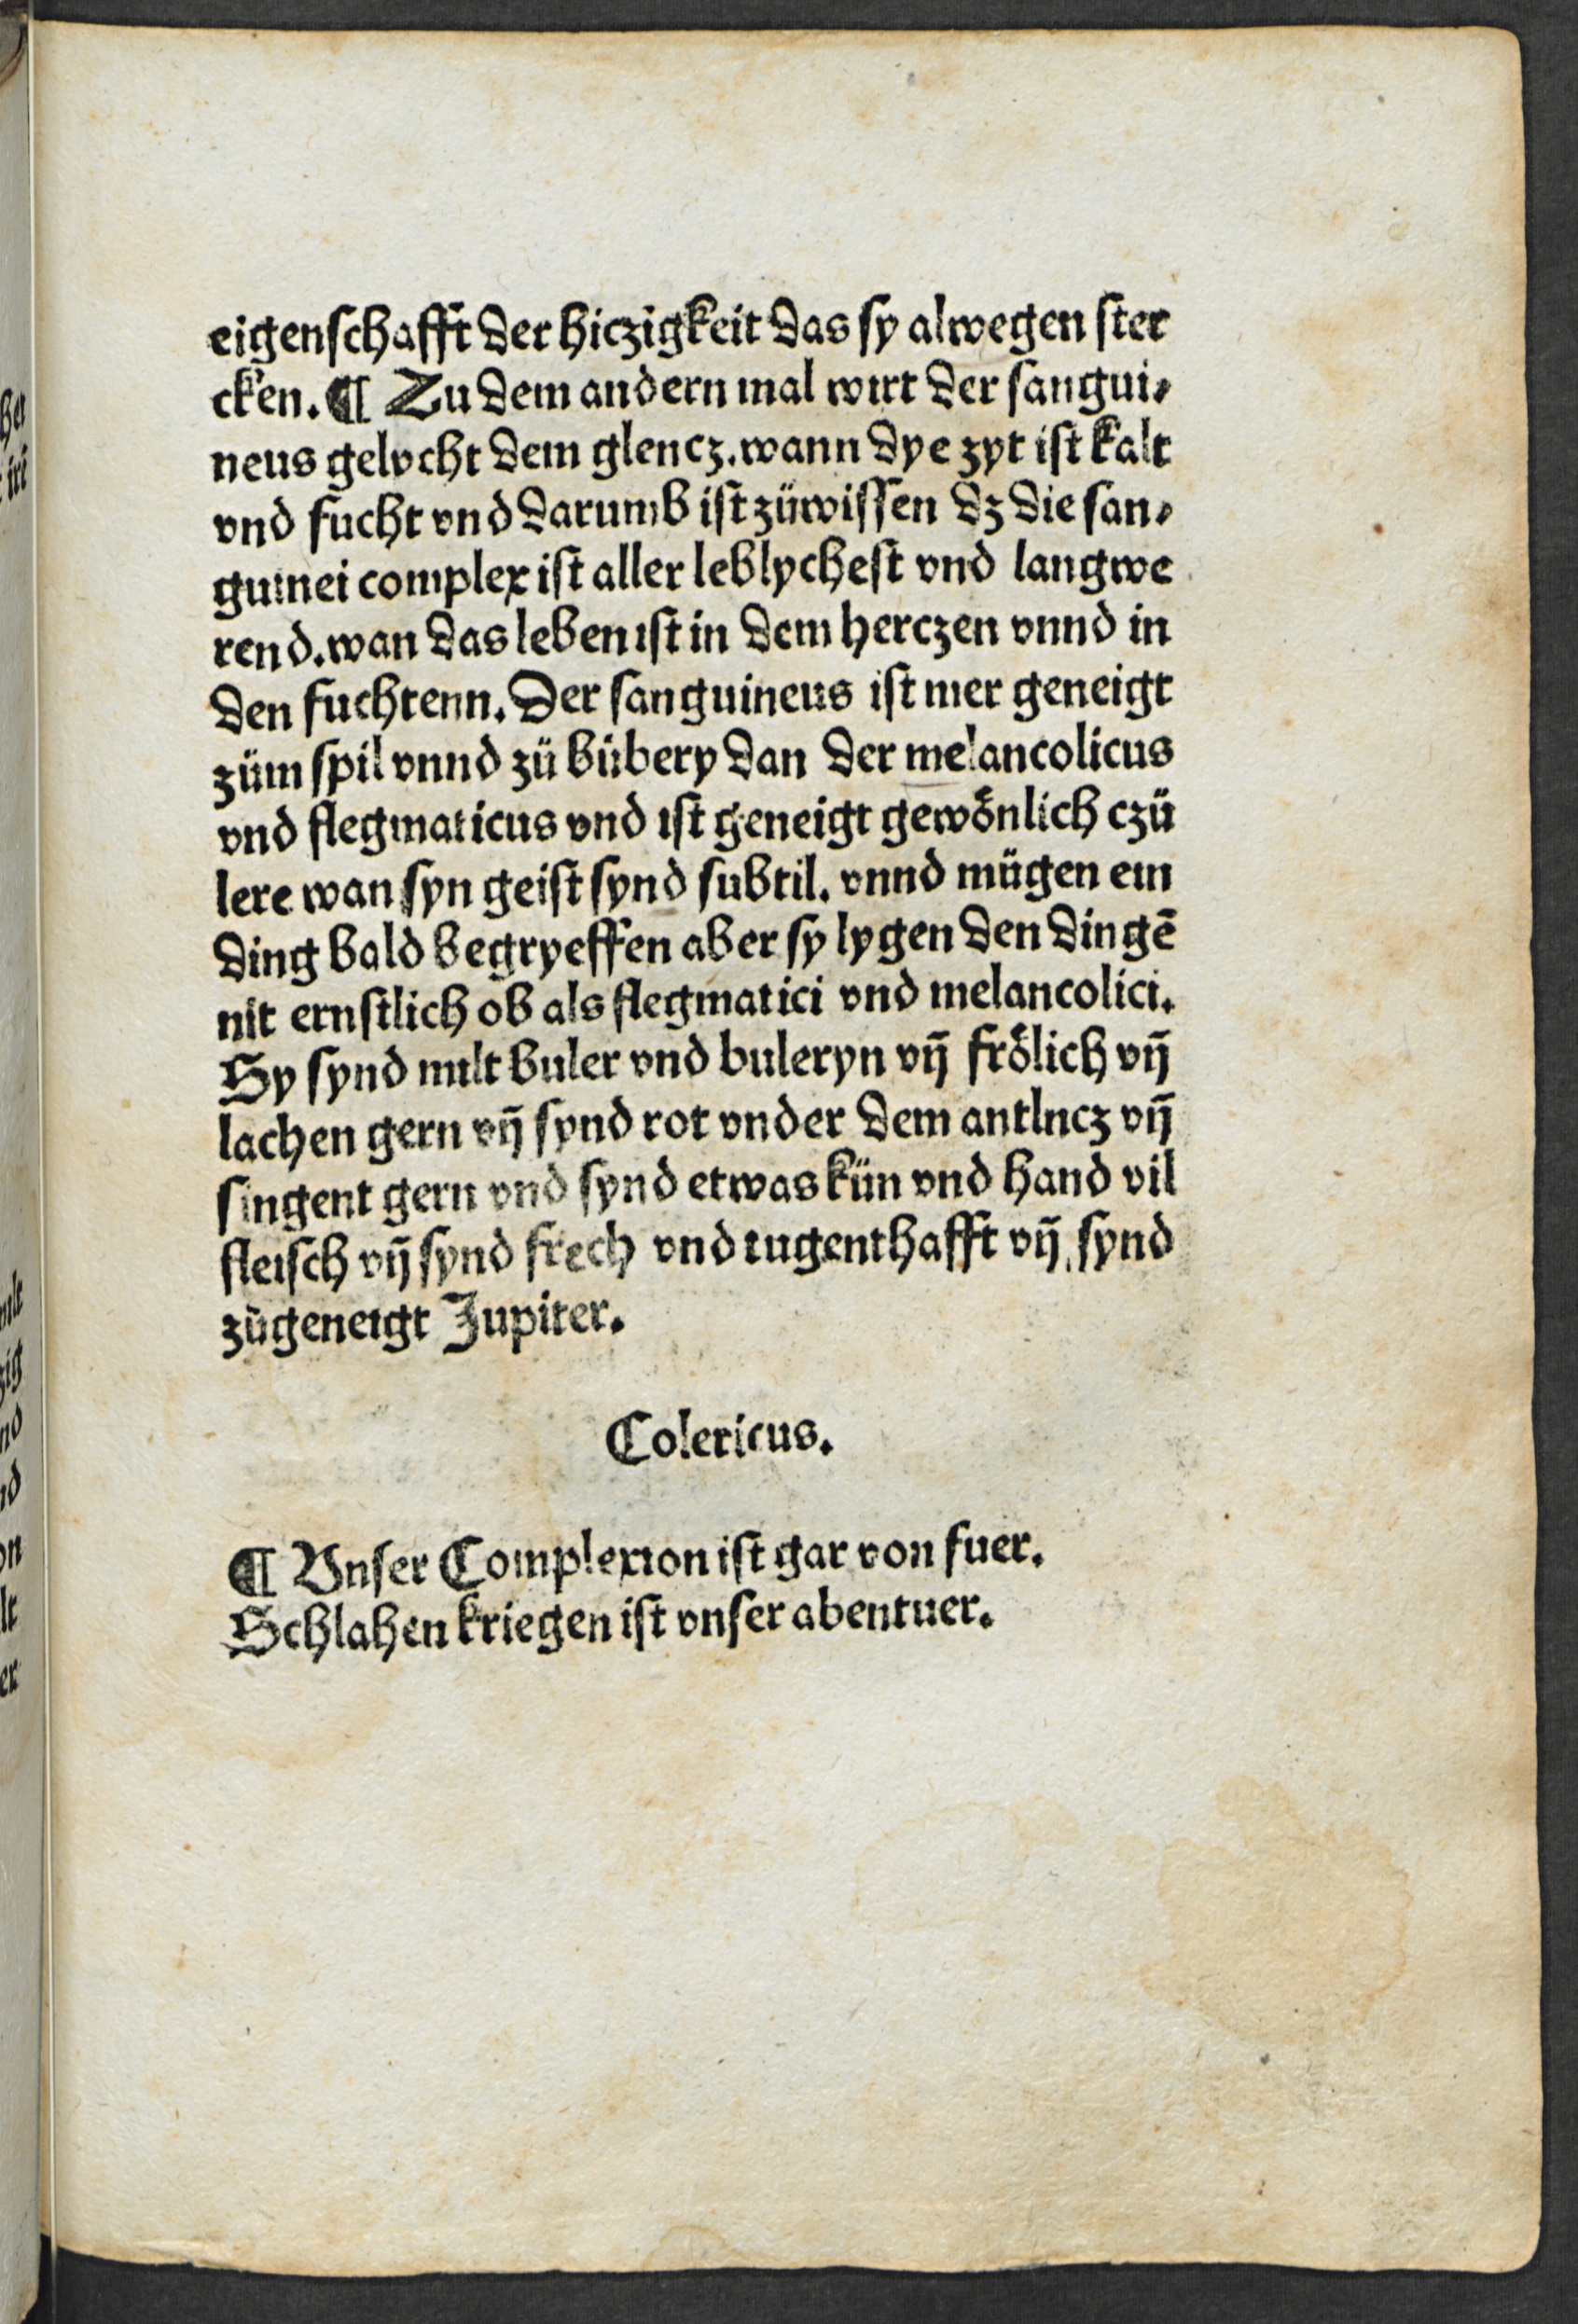 eigenschafft der hiczigkeit das sy alwegen ster
cken. ¶ Zu dem andern mal wirt der sangui⸗
neus gelycht dem glencz. wann dye zyt ist kalt
vnd fucht vnd darumb ist züwissen dz die san⸗
guinei complex ist aller leblychest vnd langwe
rend. wan das leben ist in dem herczen vnnd in
den fuchtenn. Der sanguineus ist mer geneigt
züm spil vnnd zü bübery dan der melancolicus
vnd flegmaticus vnd ist geneigt gewönlich czü
lere wan syn geist synd subtil. vnnd mügen ein
ding bald begryeffen aber sy lygen den dingē
nit ernstlich ob als flegmatici vnd melancolici.
Sy synd milt buler vnd buleryn vñ frölich vñ
lachen gern vñ synd rot vnder dem antlncz vñ
singent gern vnd synd etwas kün vnd hand vil
fleisch vñ synd frech vnd tugenthafft vñ synd
zügeneigt Jupiter.
Colericus.
¶ Vnser Complexion ist gar von fuer.
Schlahen kriegen ist vnser abentuer.